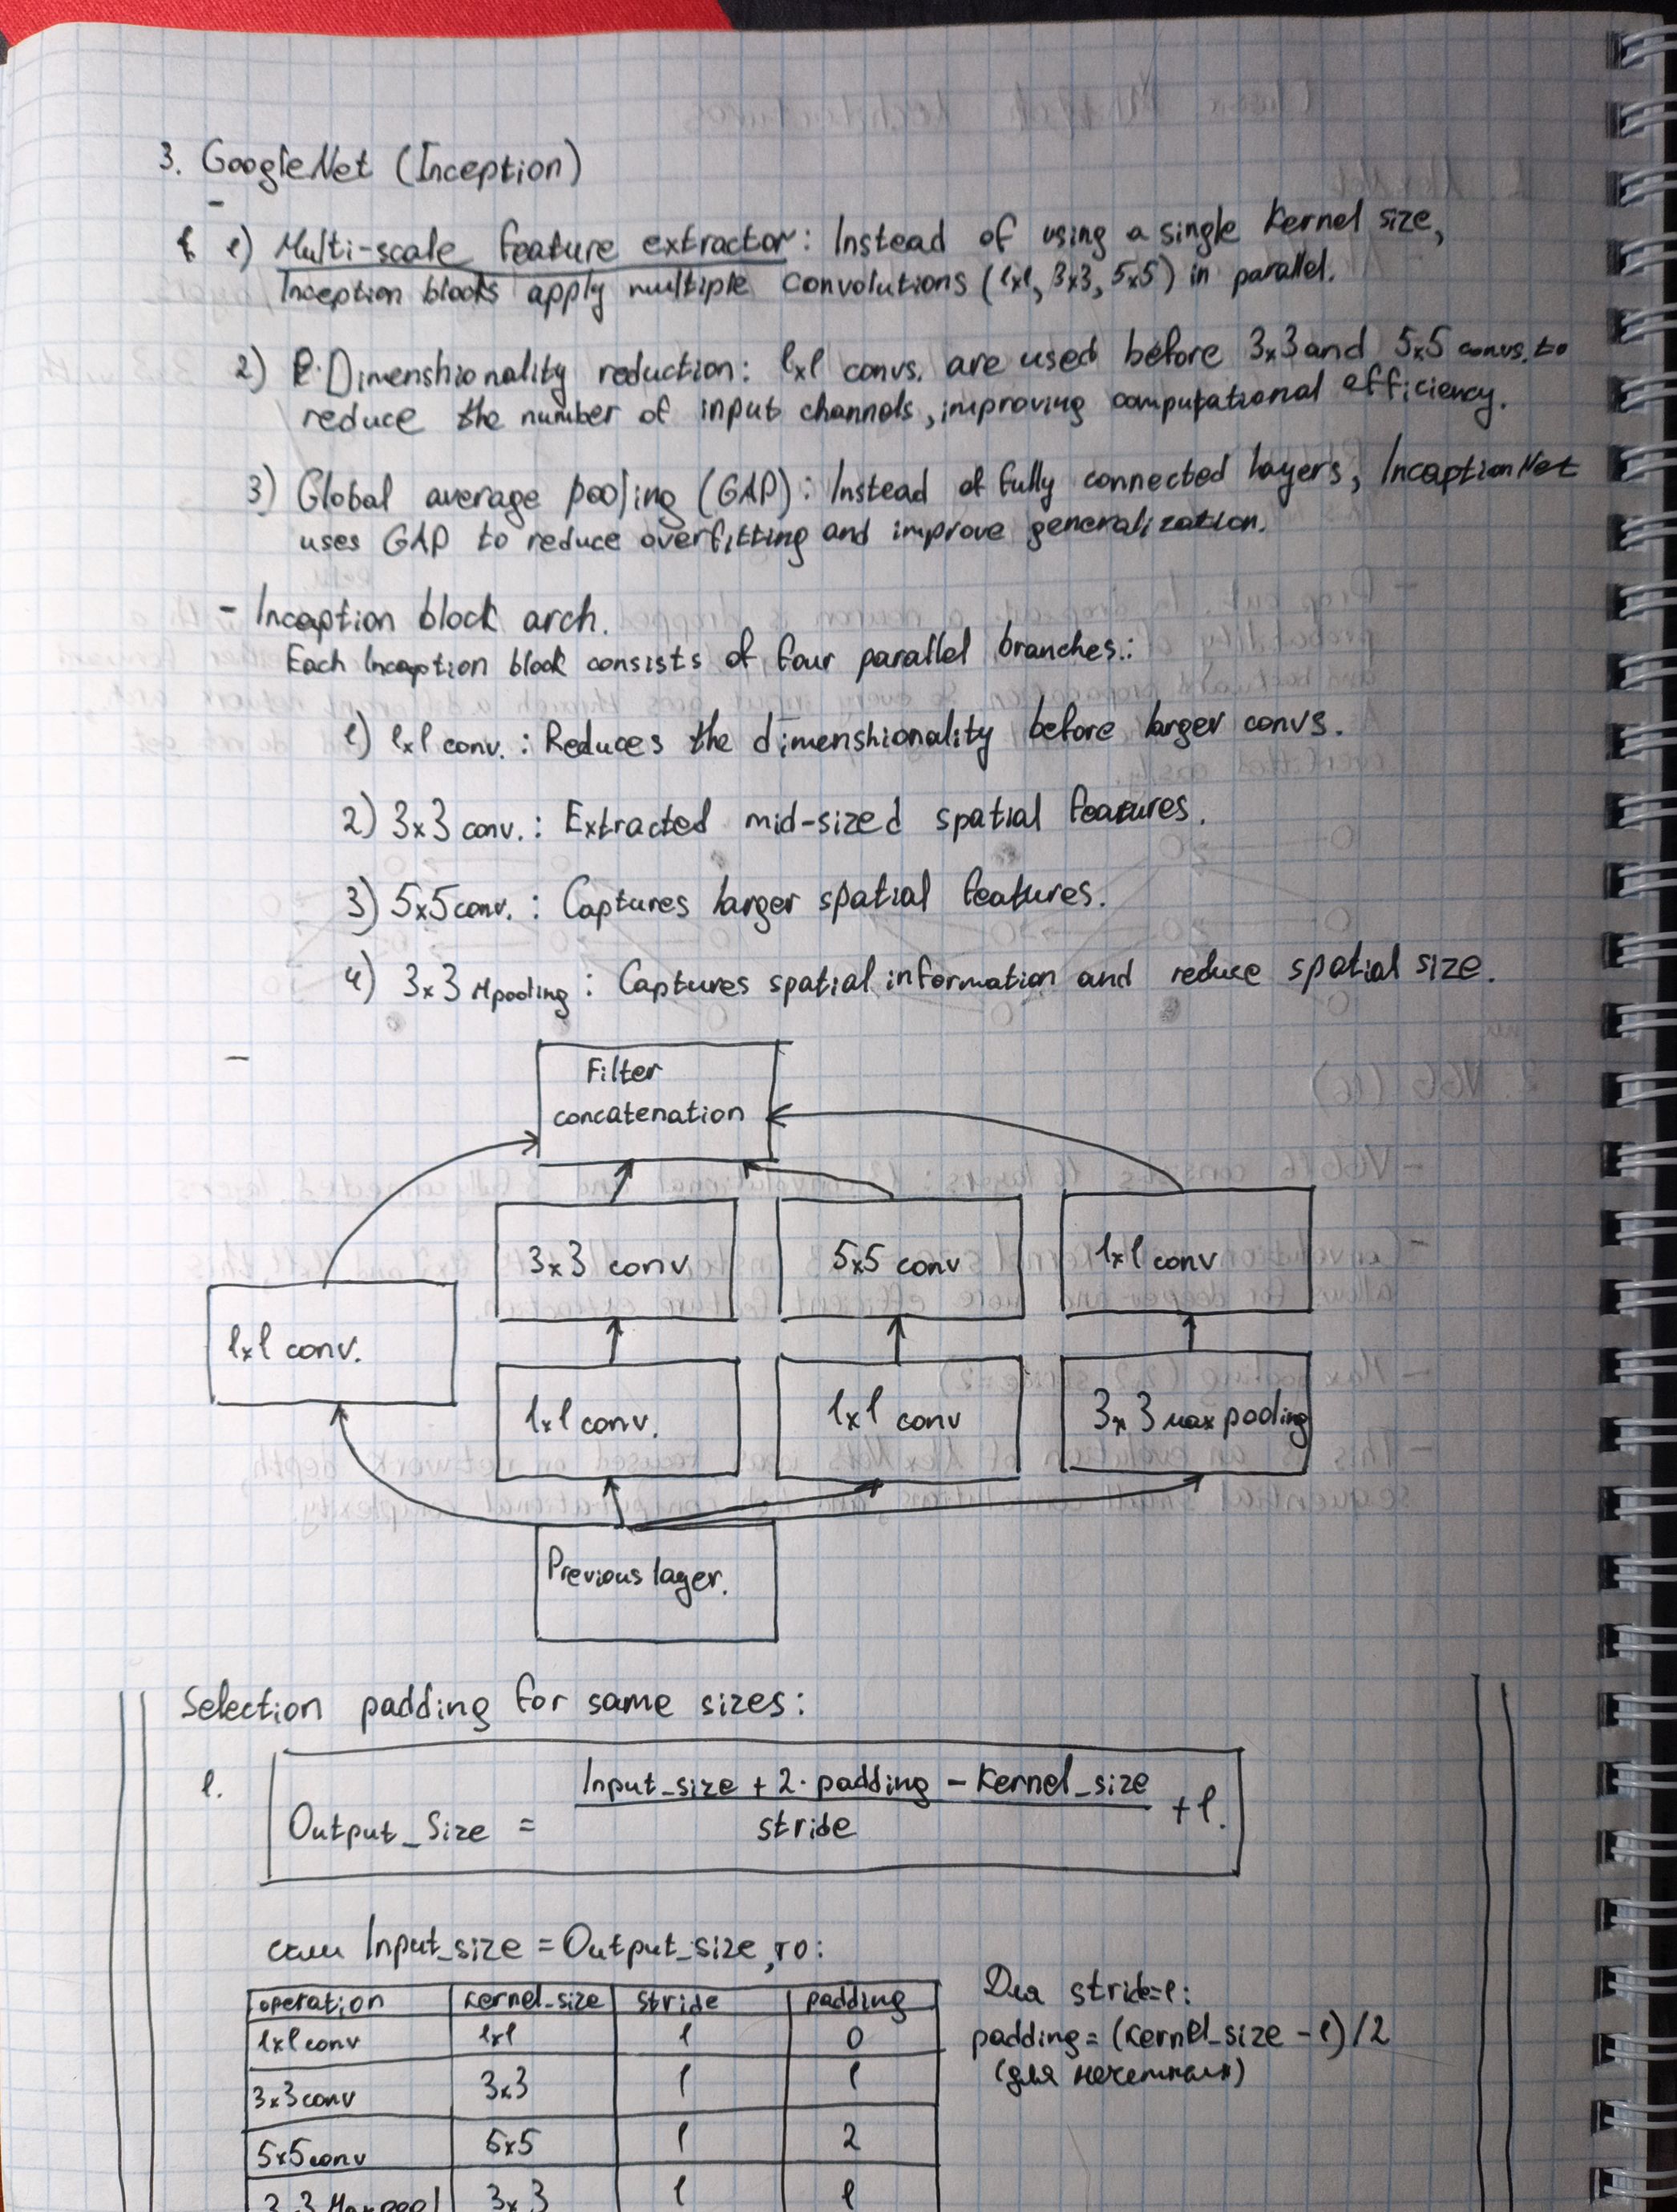 3. GoogleNet (Inception)
1) Multi-scale feature extractor: Instead of using a single kernel size,
Inception blocks apply multiple convolutions (1x1, 3x3, 5x5) in parallel.
2) Dimenshionality reduction: 1x1 convs. are used before 3x3 and 5x5 convs. to
reduce the number of input channels, improving computational efficiency.
3) Global average pooling (GAP): Instead of fully connected layers, InceptionNet
uses GAP to reduce overfitting and improve generalization.
- Inception block arch.
Each Inception block consists of four parallel branches:
1) 1x1 conv.: Reduces the dimenshionality before larger convs.
2) 3x3 conv.: Extracted mid-sized spatial features.
3) 5x5 conv.: Captures larger spatial features.
4) 3x3 Mpooling: Captures spatial information and reduce spatial size.
-
Filter
concatenation
3x3 conv
5x5 conv
1x1 conv
1x1 conv.
1x1 conv.
1x1 conv
3x3 max pooling
Previous layer.
Selection padding for same sizes:
1.
Output_Size = (Input_size + 2 · padding - Kernel_size) / stride + 1.
если Input_size = Output_size, то:
operation kernel_size stride padding
1x1 conv 1x1 1 0
3x3 conv 3x3 1 1
5x5 conv 5x5 1 2
3x3 Maxpool 3x3 1 1
Для stride=1:
padding = (kernel_size - 1)/2
(для нечетных)